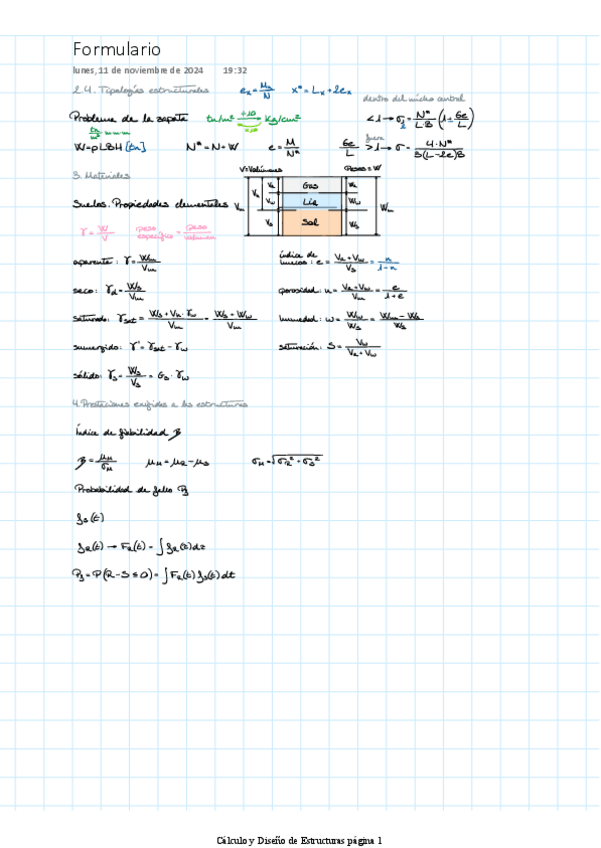 Formulario
lunes, 11 de noviembre de 2024 19:32
2.4. Tipologías estructurales e_x = M_x/N x* = L_x + 2e_x
dentro del núcleo central
Problema de la zapata tn/m² ÷10 → kg/cm² ×10 < 1 → σ = N*/(L·B) (1 + 6e/L)
W = ρLBH [tn] N* = N + W e = M/N* 6e/L fuera > 1 → σ = 4·N*/(3(L-2e)B)
3. Materiales
V = Volúmenes Pesos = W
Gas
Suelos. Propiedades elementales Líq
Sol
γ = W/V peso específico = peso/volumen
aparente: γ = W_m/V_m índice de huecos: e = (V_a + V_w)/V_s = n/(1-n)
seco: γ_d = W_s/V_m porosidad: n = (V_a + V_w)/V_m = e/(1+e)
saturado: γ_sat = (W_s + V_h·γ_w)/V_m = (W_s + W_w)/V_m humedad: w = W_w/W_s = (W_m - W_s)/W_s
sumergido: γ' = γ_sat - γ_w saturación: S = V_w/(V_a + V_w)
sólido: γ_s = W_s/V_s = G_s · γ_w
4. Prestaciones exigidas a las estructuras
Índice de fiabilidad β
β = μ_M/σ_M μ_M = μ_R - μ_S σ_M = √(σ_R² + σ_S²)
Probabilidad de fallo P_f
f_S(t)
f_R(t) → F_R(t) = ∫ f_R(z)dz
P_f = P(R - S ≤ 0) = ∫ F_R(t) f_S(t) dt
Cálculo y Diseño de Estructuras página 1